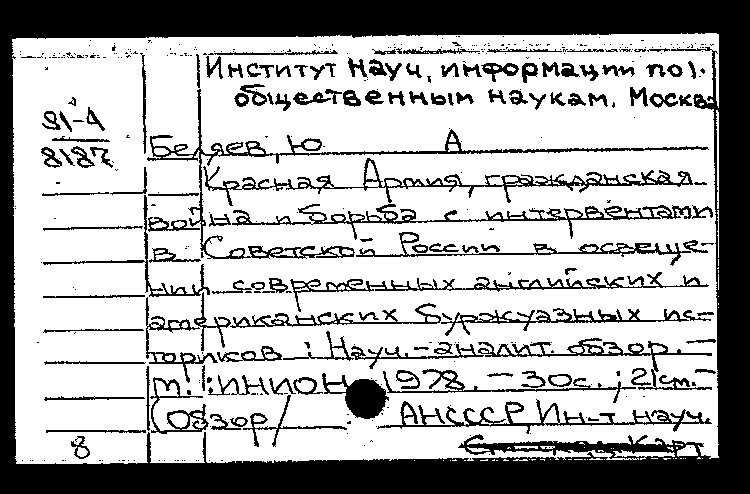 Институт науч. информации по
общественным наукам. Москва
81-4
8187
Беляев, Ю А
Красная Армия, гражданская
война и борьба с интервентами
в Советской России в освеще-
нии современных английских и
американских буржуазных ис-
ториков : Науч.-аналит. обзор. -
М. : ИНИОН, 1978. - 30 с. ; 21 см. -
(Обзор/ АН СССР, Ин-т науч.
8
Карт